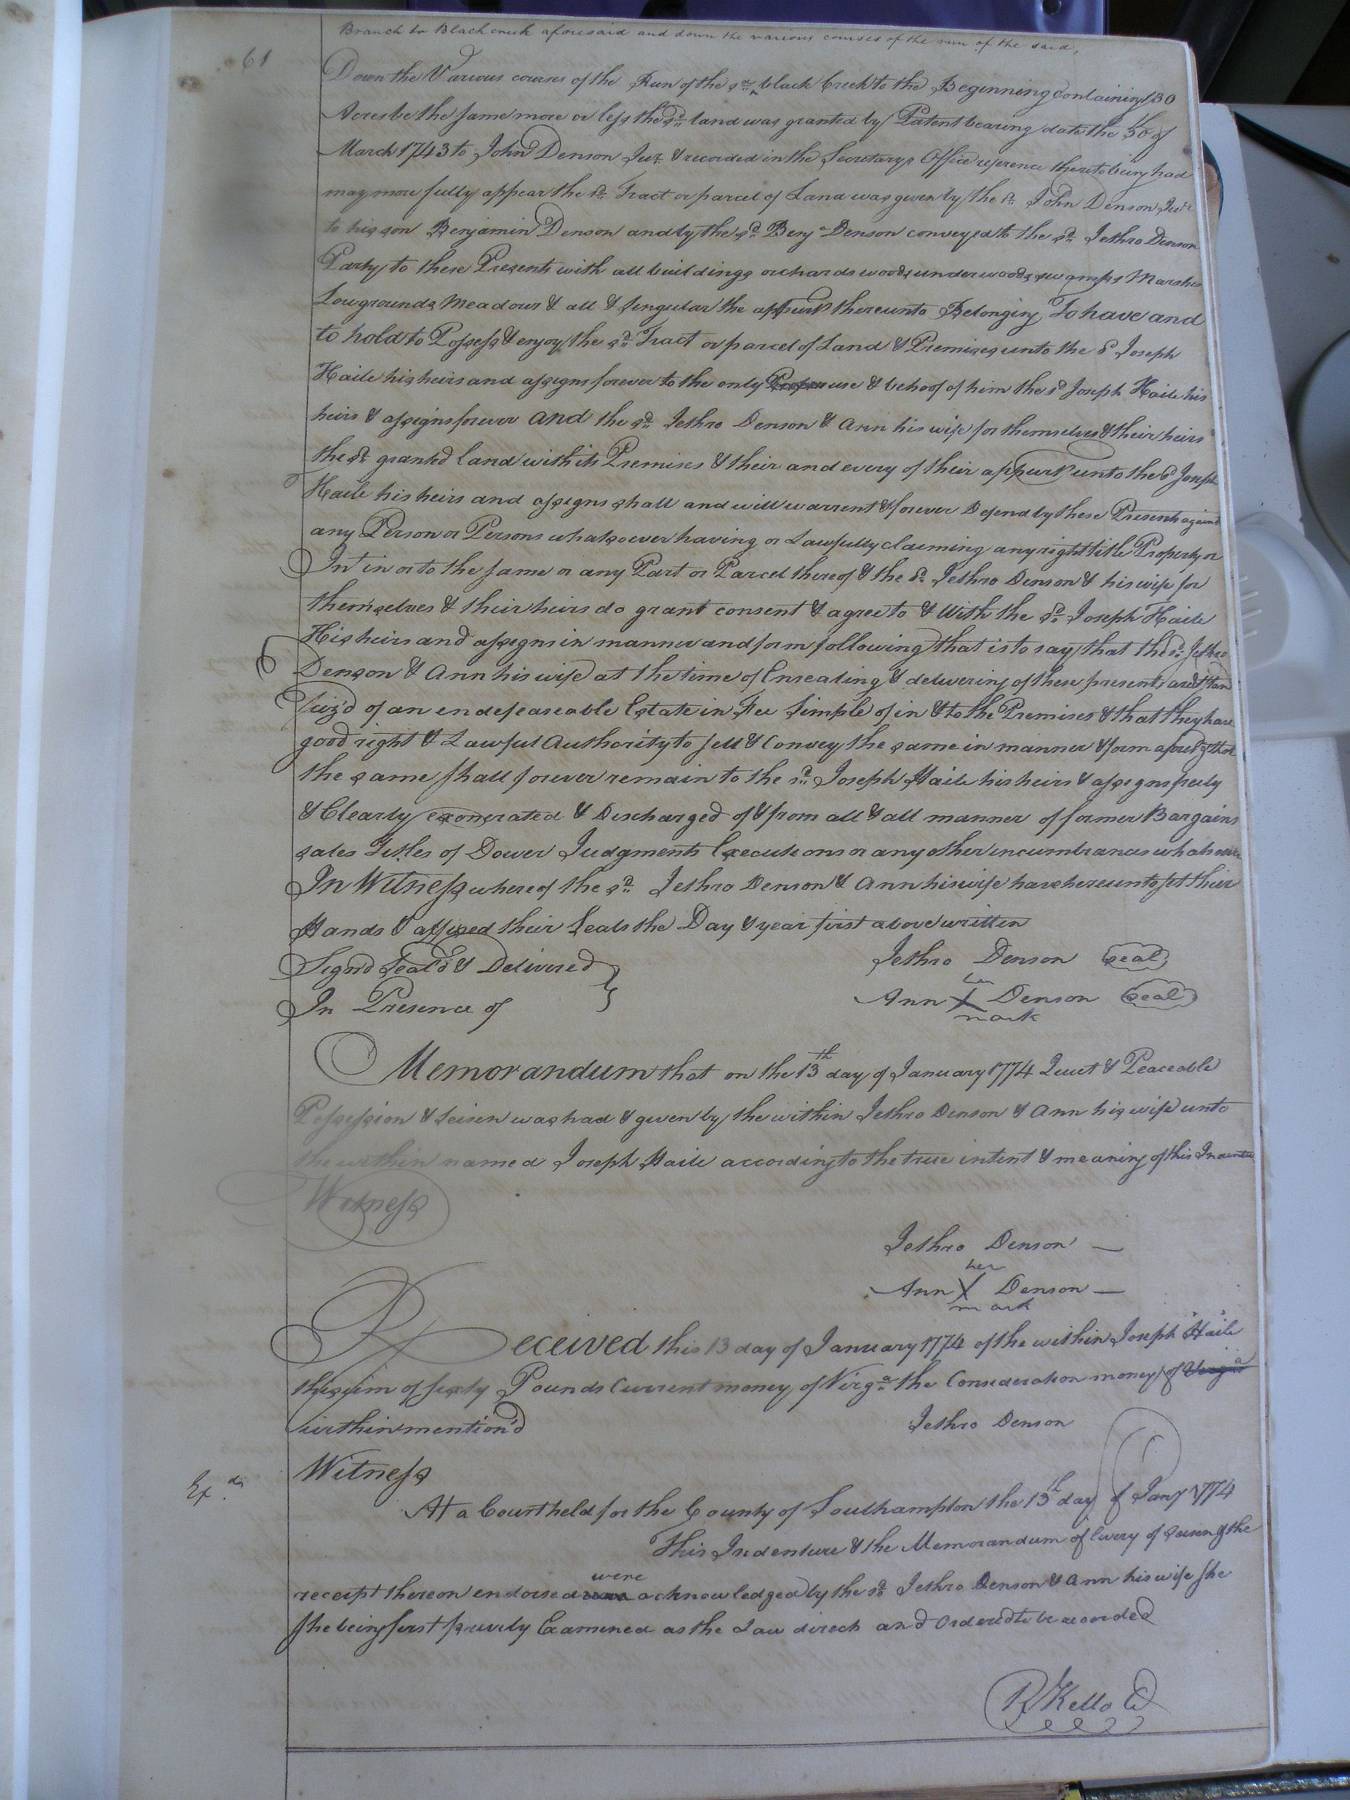 61
Branch to Black creek aforesaid and down the various courses of the run of the said,
Down the Various courses of the Run of the sd. black Creek to the Beginning Containing 130
Acres be the same more or less the sd. land was granted by Patent bearing date the 30th of
March 1743 to John Denson Junr & recorded in the Secretarys Office reference thereto being had
may more fully appear the sd. Tract or parcel of Land was given by the sd. John Denson Junr
to his son Benjamin Denson and by the sd. Benja Denson conveyed to the sd. Jethro Denson
Party to these Presents with all buildings orchards woods underwoods swamps Marshes
Lowgrounds Meadows & all & singular the appurts thereunto Belonging To have and
to hold to Possess & enjoy the sd. Tract or parcel of Land & Premises unto the sd Joseph
Haile his heirs and assigns forever to the only Proper use & behoof of him the sd Joseph Haile his
heirs & assigns forever and the sd. Jethro Denson & Ann his wife for themselves & their heirs
the sd. granted land with its Premises & their and every of their appurts unto the sd Joseph
Haile his heirs and assigns shall and will warrent & forever Defend by these Presents against
any Person or Persons whatsoever having or Lawfully claiming any right title Property or
Int in or to the same or any Part or Parcel thereof & the sd. Jethro Denson & his wife for
themselves & their heirs do grant consent & agree to & With the sd. Joseph Haile
His heirs and assigns in manner and form following that is to say that the sd. Jethro
Denson & Ann his wife at the time of Ensealing & delivering of these presents are & stand
Seiz'd of an endefeaseable Estate in Fee Simple of in & to the Premises & that they have
good right & Lawful Authority to sell & Convey the same in manner & form aforesd & that
the same shall forever remain to the sd. Joseph Haile his heirs & assigns freely
& Clearly exonerated & Discharged of & from all & all manner of former Bargains
sales Titles of Dower Judgments Executions or any other incumbrances whatsoever
In Witness whereof the sd. Jethro Denson & Ann his wife have hereunto set their
Hands & affixed their Seals the Day & year first above written
Signd Seal'd & Delivered Jethro Denson seal
In Presence of Ann her X mark Denson seal
Memorandum that on the 13th day of January 1774 Quiet & Peaceable
Possession & seisen was had & given by the within Jethro Denson & Ann his wife unto
the within named Joseph Haile according to the true intent & meaning of this Indenture
Witness
Jethro Denson
Ann her X mark Denson
Received this 13 day of January 1774 of the within Joseph Haile
the sum of sixty Pounds Current money of Virga. the Consideration money of Virga
within mention'd Jethro Denson
Witness
Exd.
At a Court held for the County of Southampton the 13th day of Jany 1774
This Indenture & the Memorandum of livery of seisen & the
receipt thereon endorsed were acknowledged by the sd. Jethro Denson & Ann his wife she
she being first privily Examined as the Law directs and Ordered to be recorded
R Kello